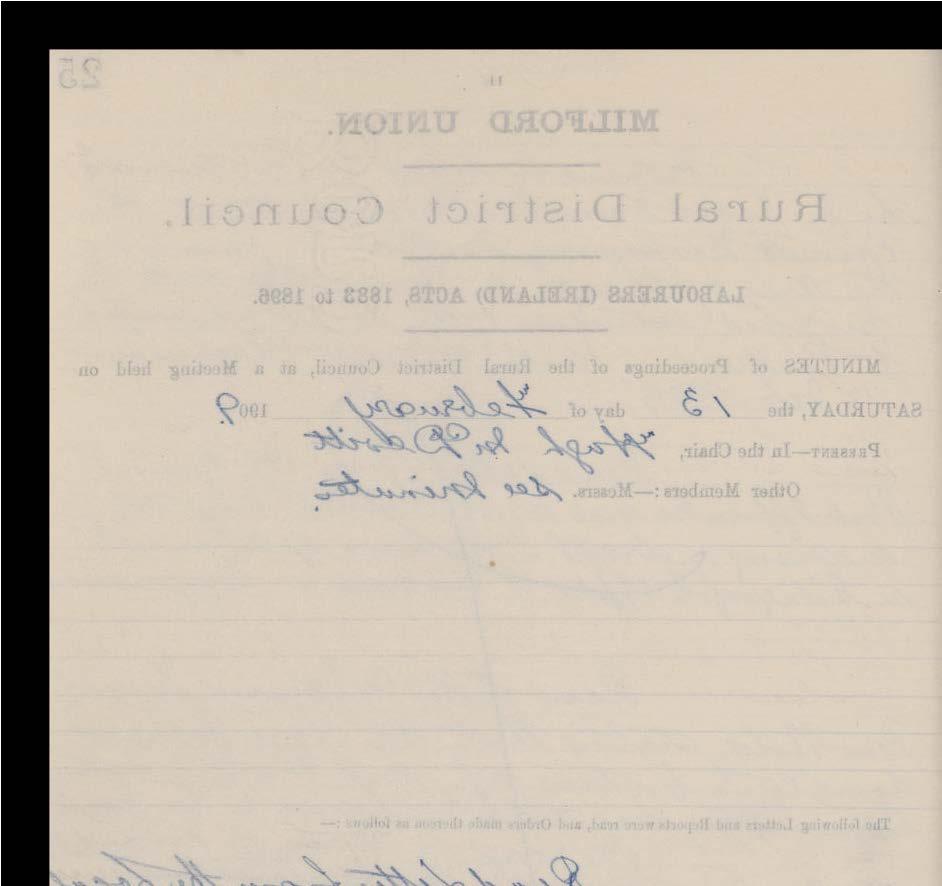 25
11
MILFORD UNION.
Rural District Council.
LABOURERS (IRELAND) ACTS, 1883 to 1896.
MINUTES of Proceedings of the Rural District Council, at a Meeting held on
SATURDAY, the 13 day of February 1909.
PRESENT—In the Chair, Hugh McDevitt
Other Members:—Messrs. see minutes
The following Letters and Reports were read, and Orders made thereon as follows:—
Read letter from the Local